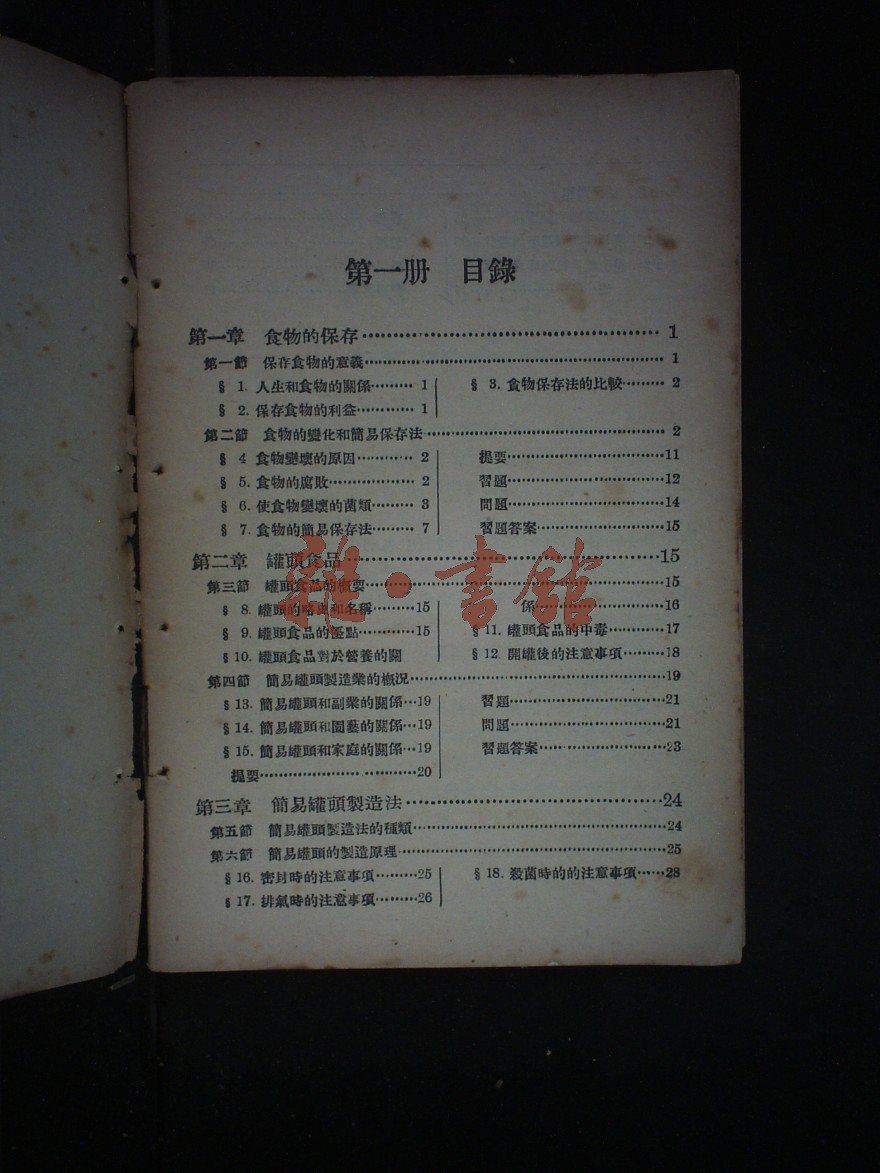 第一册 目錄
第一章 食物的保存 1
第一節 保存食物的意義 1
§ 1. 人生和食物的關係 1
§ 2. 保存食物的利益 1
§ 3. 食物保存法的比較 2
第二節 食物的變化和簡易保存法 2
§ 4 食物變壞的原因 2
§ 5. 食物的腐敗 2
§ 6. 使食物變壞的菌類 3
§ 7. 食物的簡易保存法 7
提要 11
習題 12
問題 14
習題答案 15
第二章 罐頭食品 15
第三節 罐頭食品的概要 15
§ 8. 罐頭的略史和名稱 15
§ 9. 罐頭食品的優點 15
§ 10. 罐頭食品對於營養的關
係 16
§ 11. 罐頭食品的中毒 17
§ 12. 開罐後的注意事項 18
第四節 簡易罐頭製造業的概況 19
§ 13. 簡易罐頭和副業的關係 19
§ 14. 簡易罐頭和園藝的關係 19
§ 15. 簡易罐頭和家庭的關係 19
提要 20
習題 21
問題 21
習題答案 23
第三章 簡易罐頭製造法 24
第五節 簡易罐頭製造法的種類 24
第六節 簡易罐頭的製造原理 25
§ 16. 密封時的注意事項 25
§ 17. 排氣時的注意事項 26
§ 18. 殺菌時的的注意事項 28
雜·書館